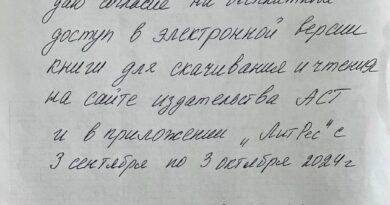 даю согласие на бесплатный
доступ в электронной версии
книги для скачивания и чтения
на сайте издательства АСТ
и в приложении „ЛитРес" с
3 сентября по 3 октября 2024 г